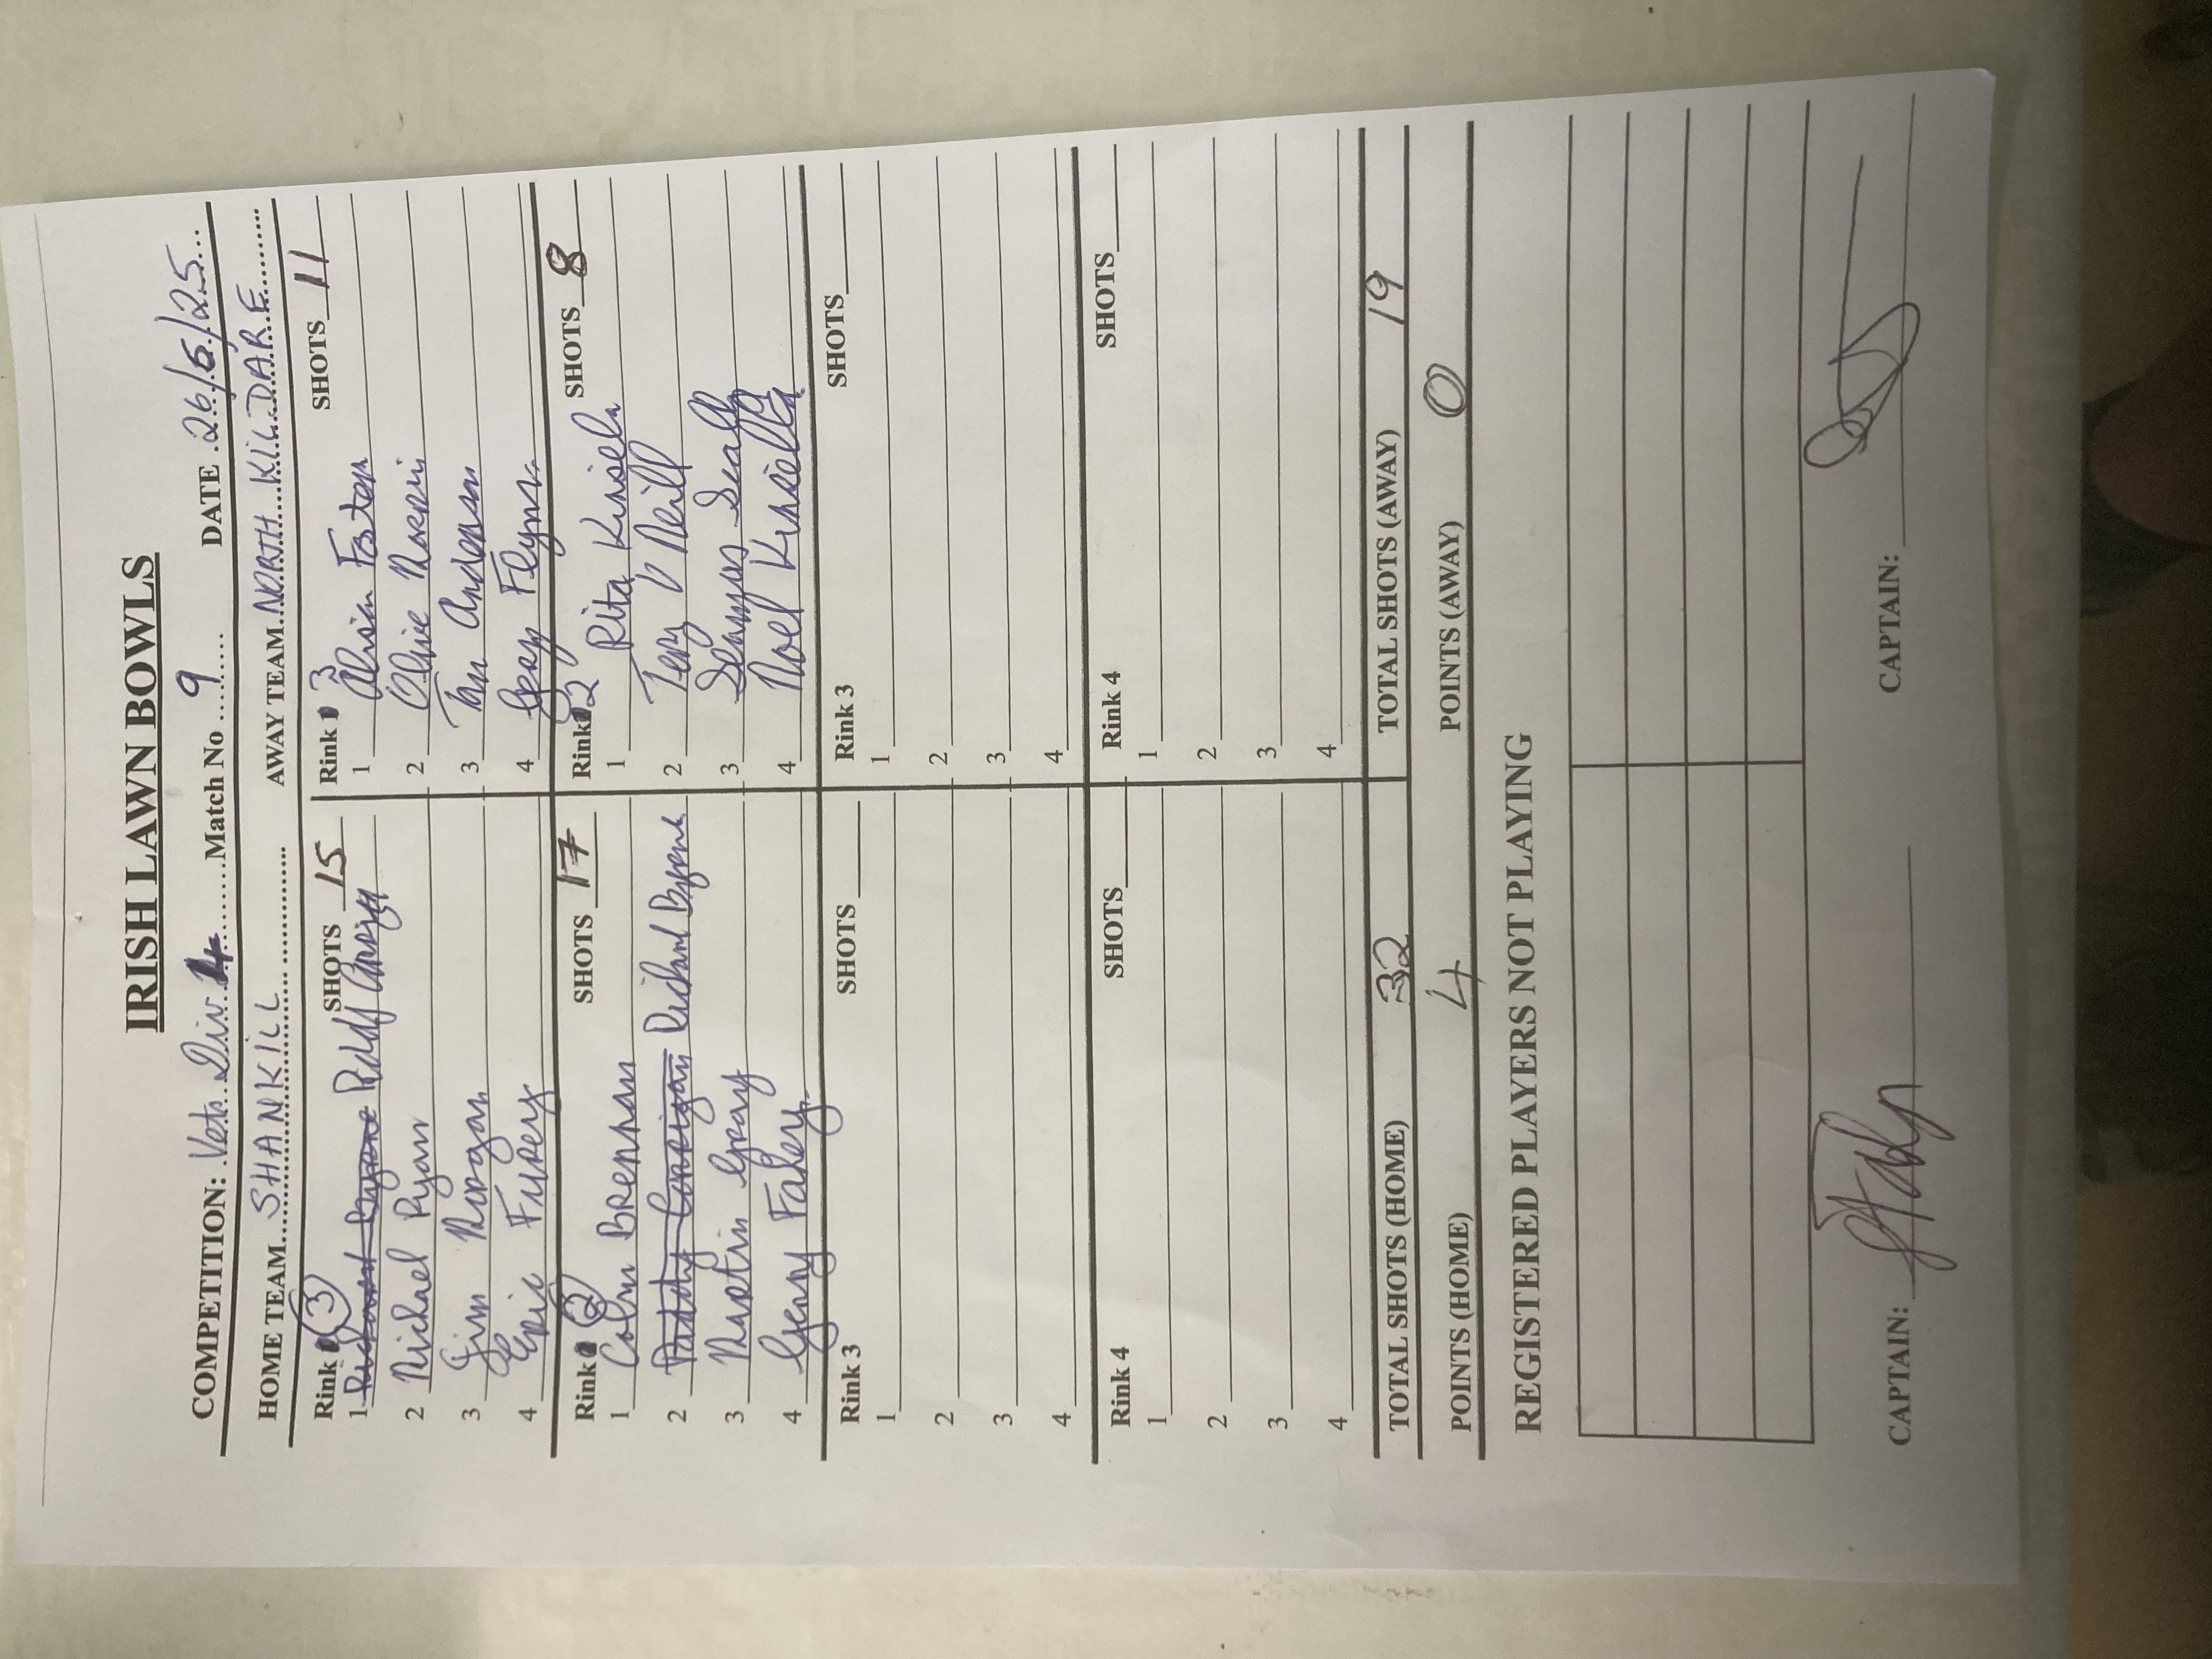 IRISH LAWN BOWLS
COMPETITION: Vets Div 4 Match No 9 DATE 26/6/25
HOME TEAM SHANKILL AWAY TEAM NORTH KILDARE
Rink (3) SHOTS 15
1 Richard Byrne Paddy Corrigan
2 Michael Ryan
3 Jim Morgan
4 Eric Furey
Rink 3 SHOTS 11
1 Alison Foster
2 Olive
3 Anderson
4 Gerry Flynn
Rink (2) SHOTS 17
1 Colm Brennan
2 Paddy Corrigan Richard Byrne
3 Martin Gray
4 Gerry Fahey
Rink 2 SHOTS 8
1 Rita Kinsela
2 Terry O Neill
3 Seamus Scally
4 Noel Kinsella
Rink 3 SHOTS
1
2
3
4
Rink 3 SHOTS
1
2
3
4
Rink 4 SHOTS
1
2
3
4
Rink 4 SHOTS
1
2
3
4
TOTAL SHOTS (HOME) 32 TOTAL SHOTS (AWAY) 19
POINTS (HOME) 4 POINTS (AWAY) 0
REGISTERED PLAYERS NOT PLAYING
CAPTAIN: CAPTAIN: